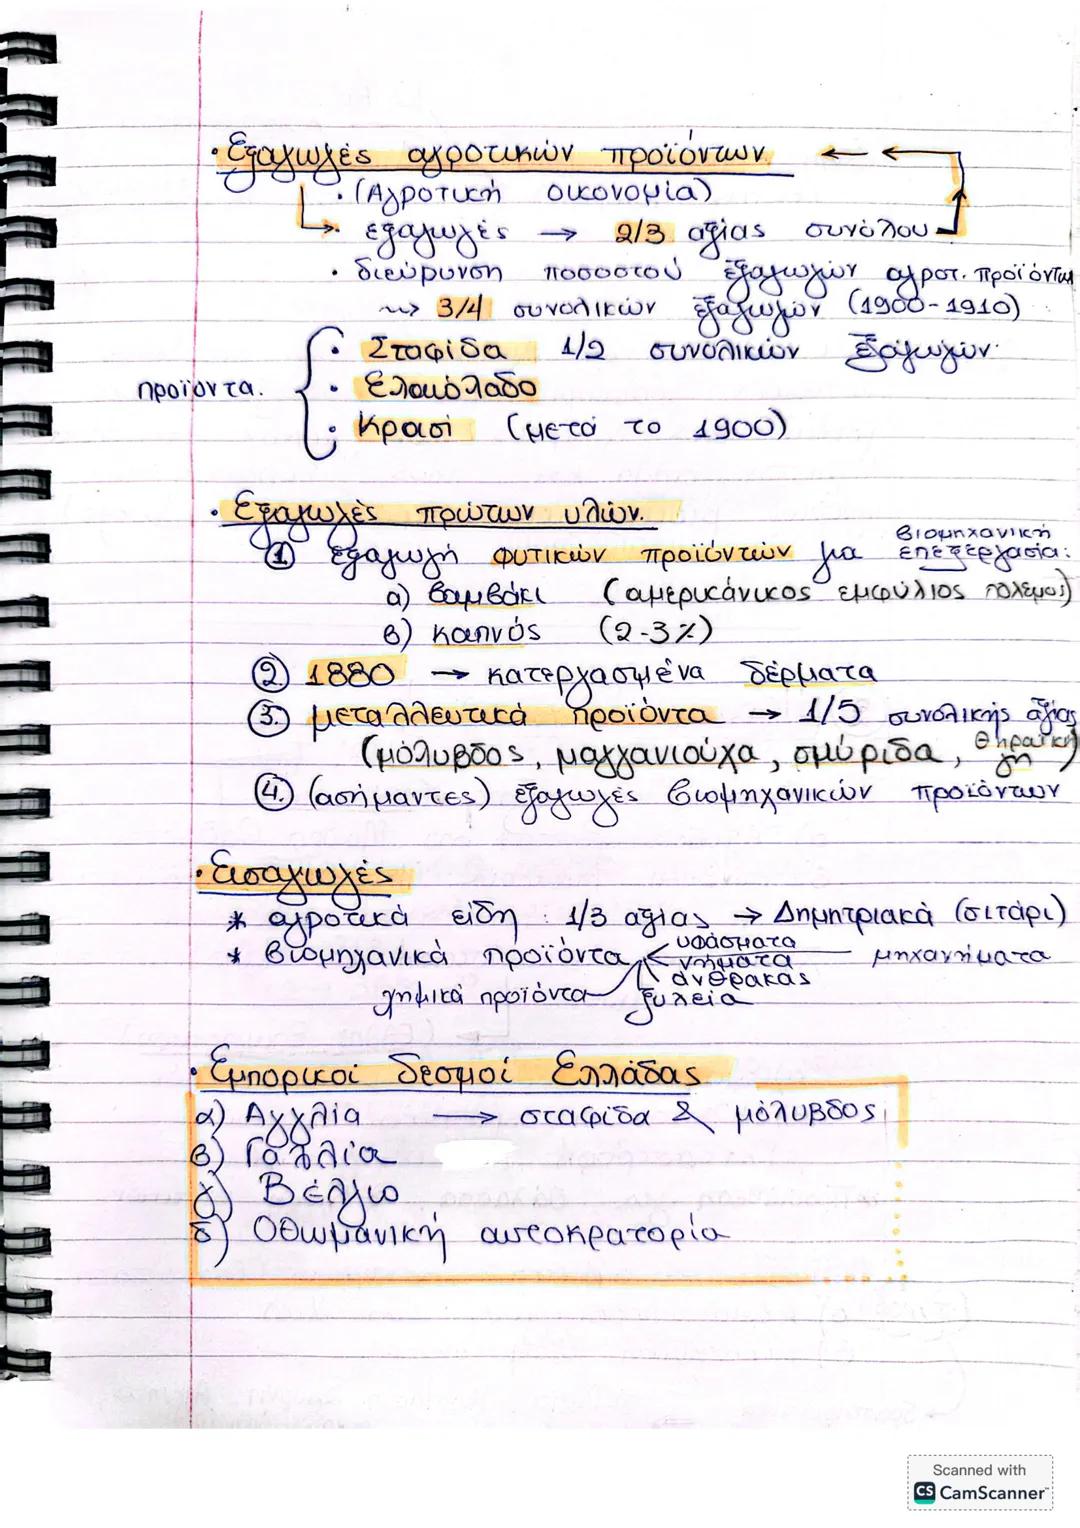 · Εξαγωγές αγροτικών προϊόντων.
· (Αγροτική οικονομία)
εξαγωγές → 2/3 αξίας συνόλου
· διεύρυνση ποσοστού εξαγωγών αγροτ. προϊόντων
~> 3/4 συνολικών εξαγωγών (1900-1910)
· Σταφίδα 1/2 συνολικών εξαγωγών
προϊόντα. · Ελαιόλαδο
· Κρασί (μετά το 1900)
· Εξαγωγές πρώτων υλών.
① εξαγωγή φυτικών προϊόντων για βιομηχανική επεξεργασία:
α) βαμβάκι (αμερικάνικος εμφύλιος πόλεμος)
β) καπνός (2-3%)
② 1880 → κατεργασμένα δέρματα
③. μεταλλευτικά προϊόντα → 1/5 συνολικής αξίας
(μόλυβδος, μαγγανιούχα, σμύριδα, θηραϊκή γη)
④. (ασήμαντες) εξαγωγές βιομηχανικών προϊόντων
· Εισαγωγές
* αγροτικά είδη : 1/3 αξίας → Δημητριακά (σιτάρι)
* βιομηχανικά προϊόντα υφάσματα
νήματα μηχανήματα
άνθρακας
χημικά προϊόντα ξυλεία
· Εμπορικοί δεσμοί Ελλάδας
α) Αγγλία → σταφίδα & μόλυβδος
β) Γαλλία
γ) Βέλγιο
δ) Οθωμανική αυτοκρατορία
Scanned with
CS CamScanner